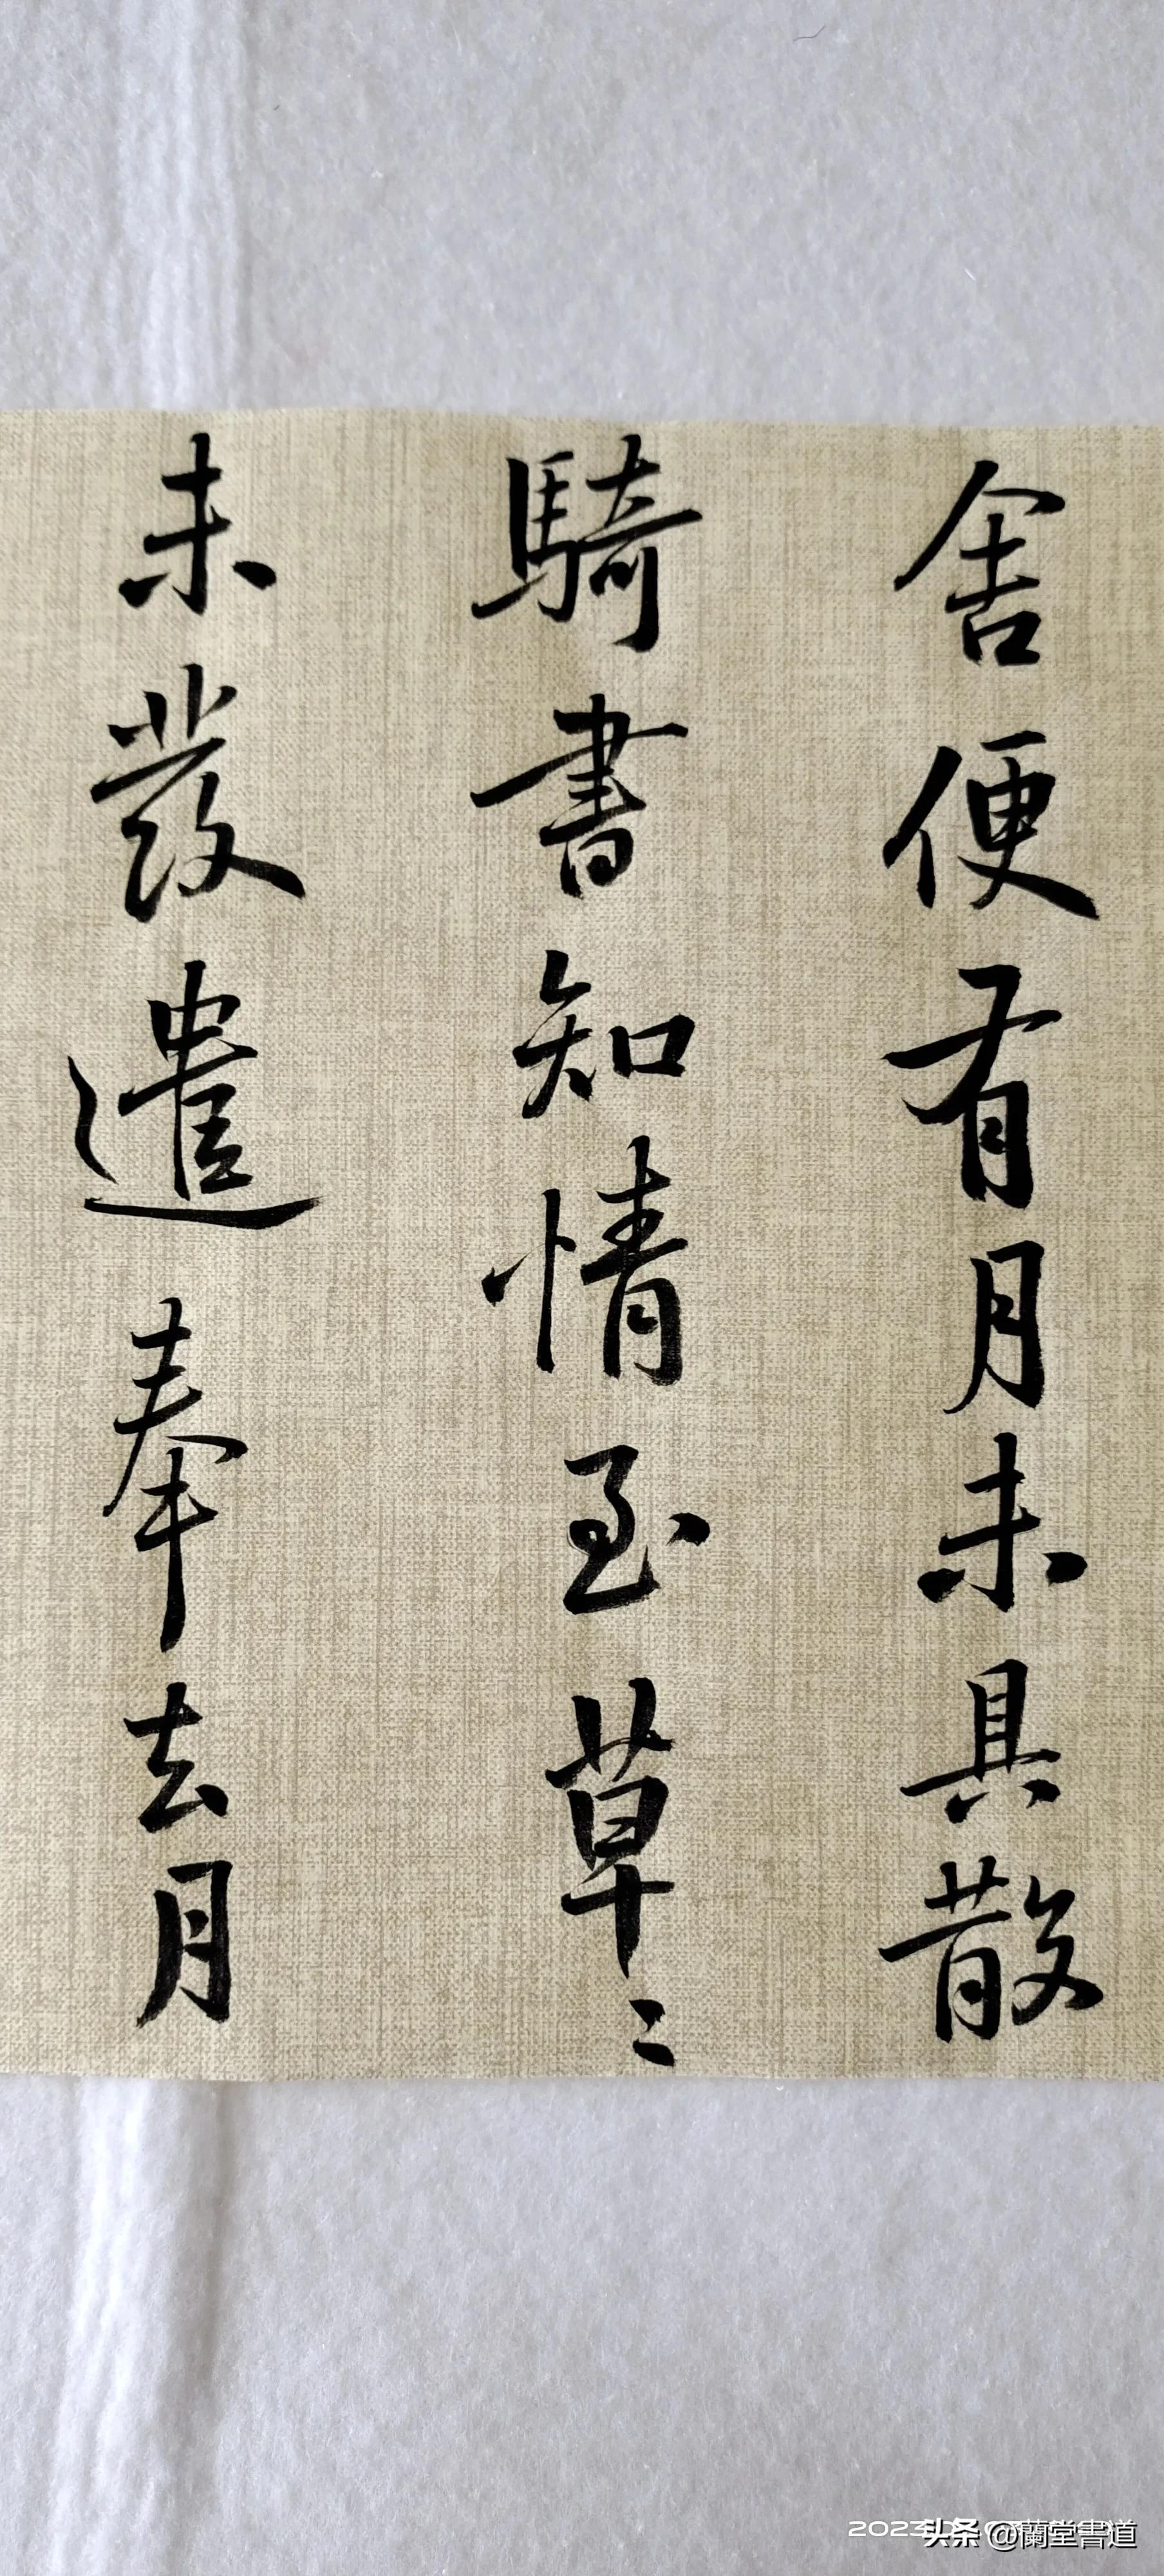 舍便有月未具散
騎書知情至草〻
未發遣奉去月
头条 @蘭堂書道